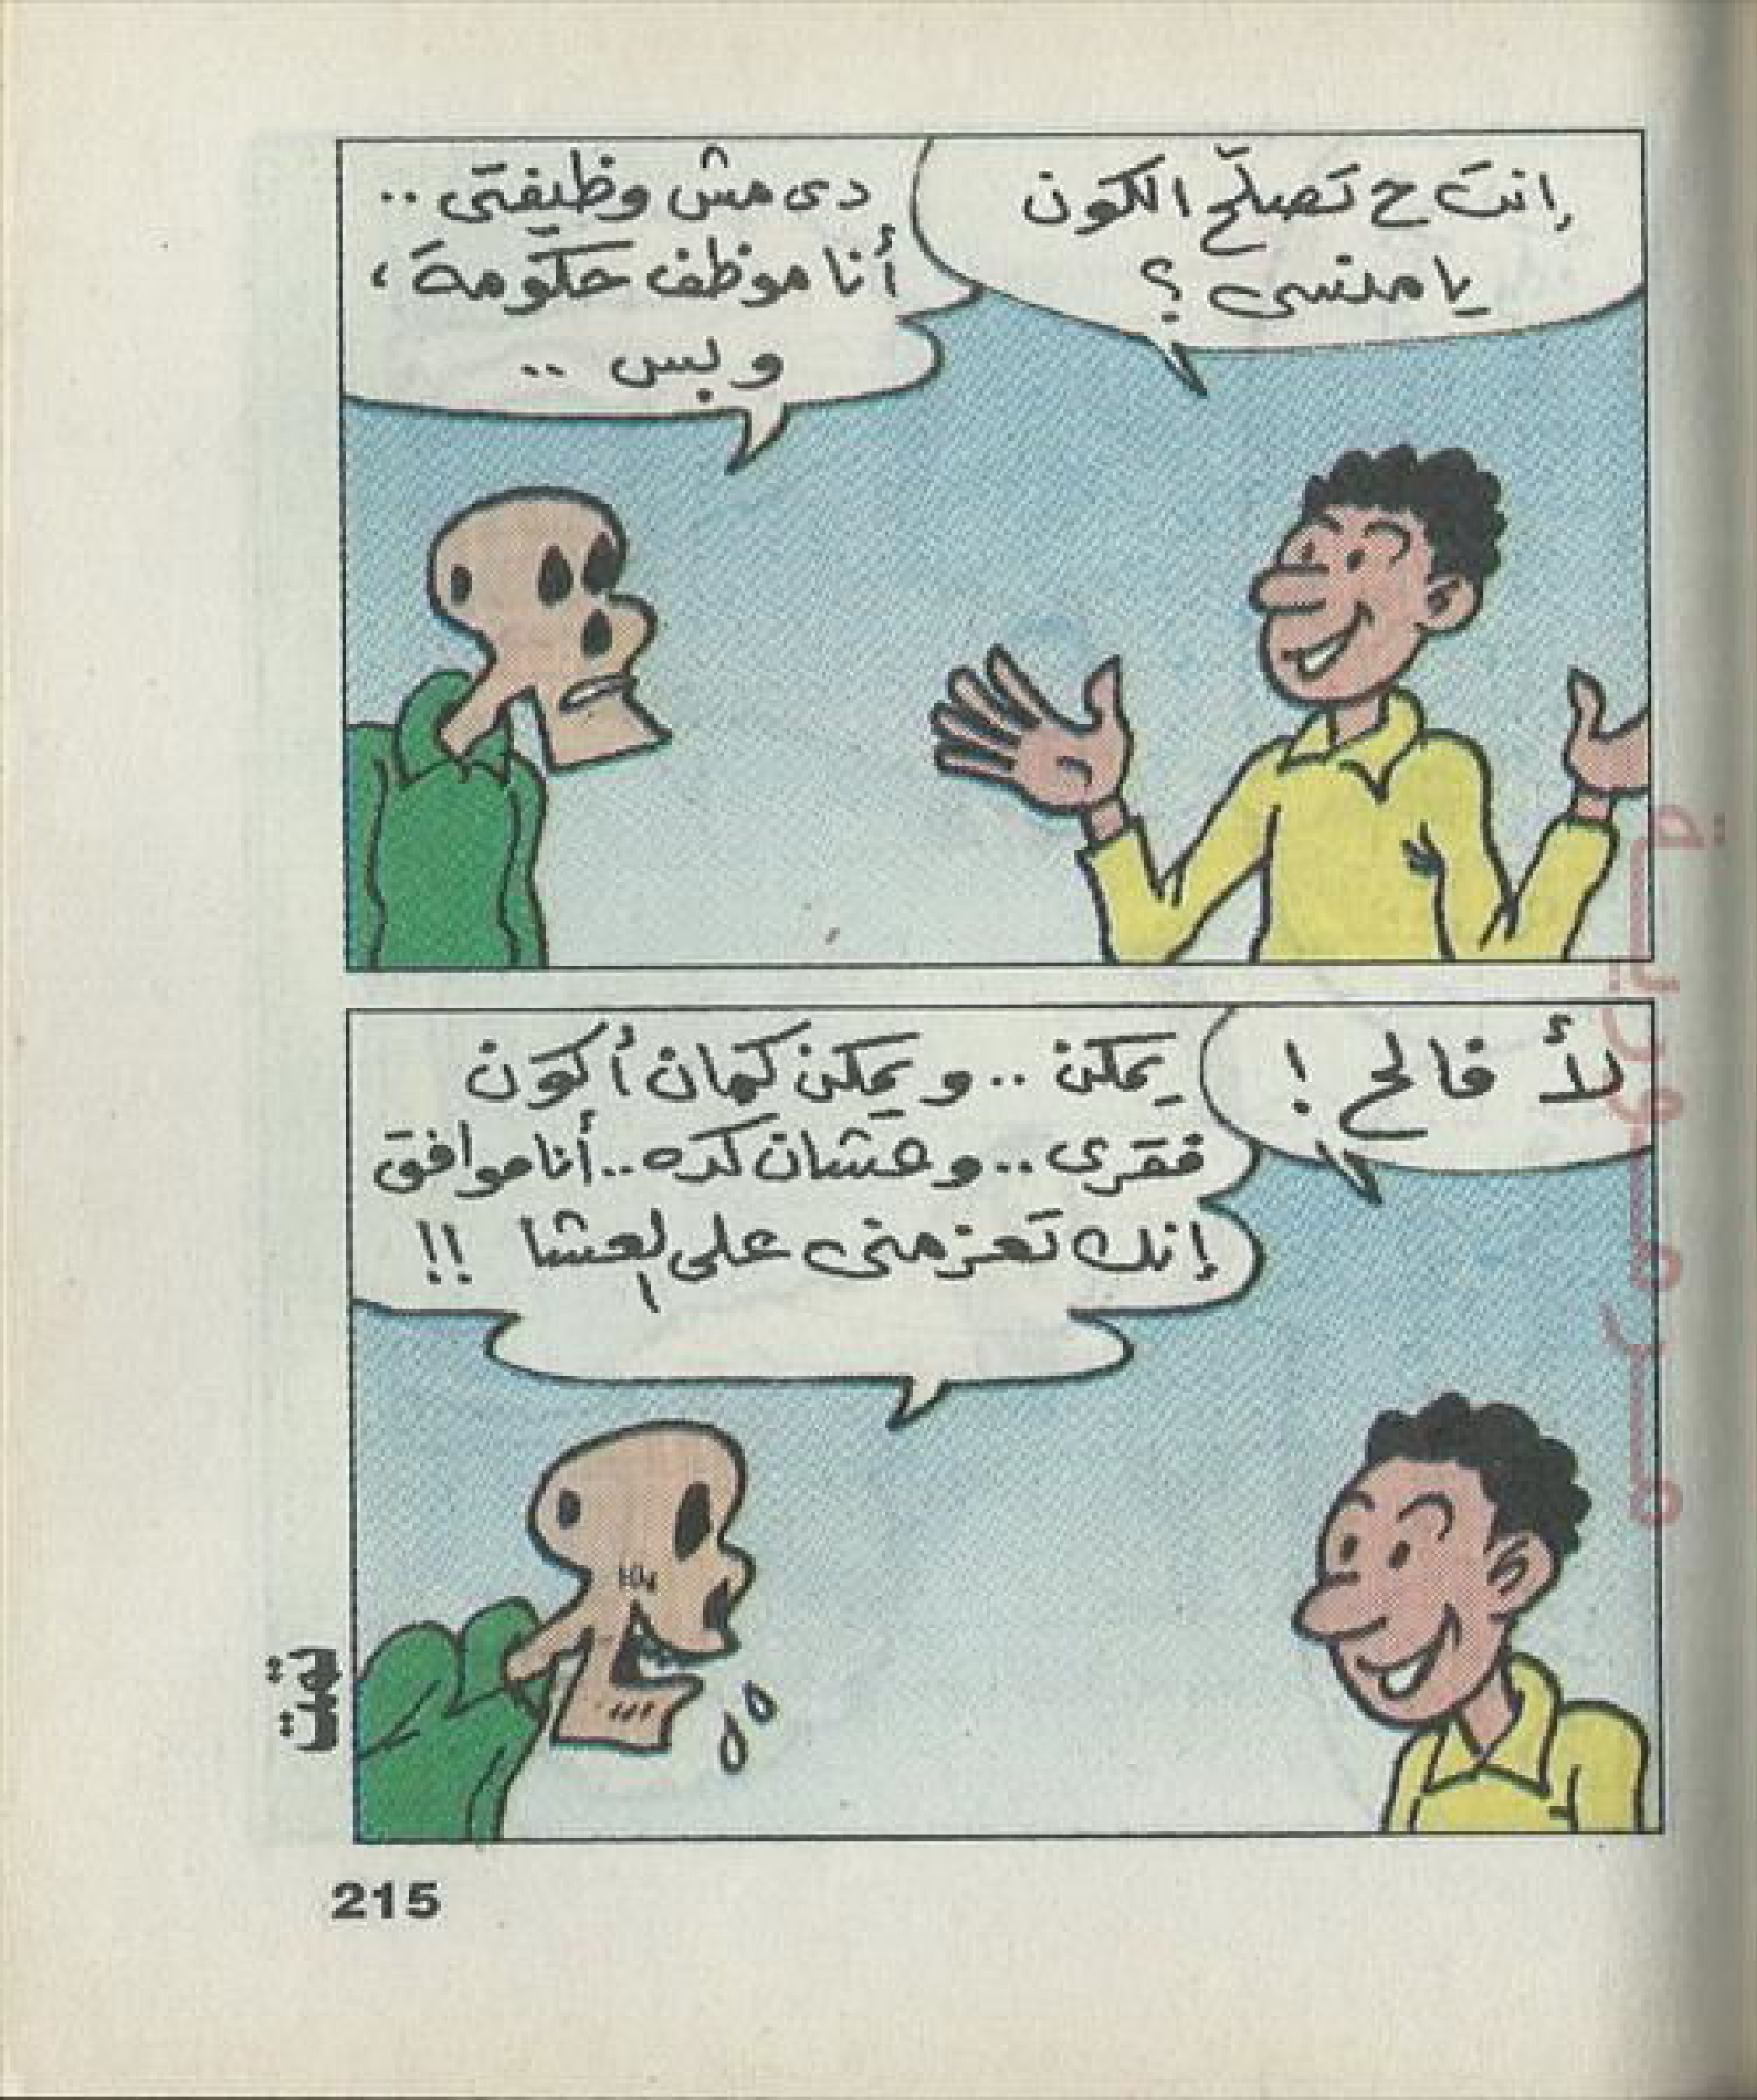 إنتَ ح تَصلّح الكَون
يا منسى ؟
دى مش وظيفتى ..
أنا موظف حكَومةَ ،
و بس ..
لأ فالح !
يمكن .. و يمكن كمان أكَون
فقرى .. و عشان كده .. أنا موافق
إنك تَعزمنى على العشا !!
تمت
215